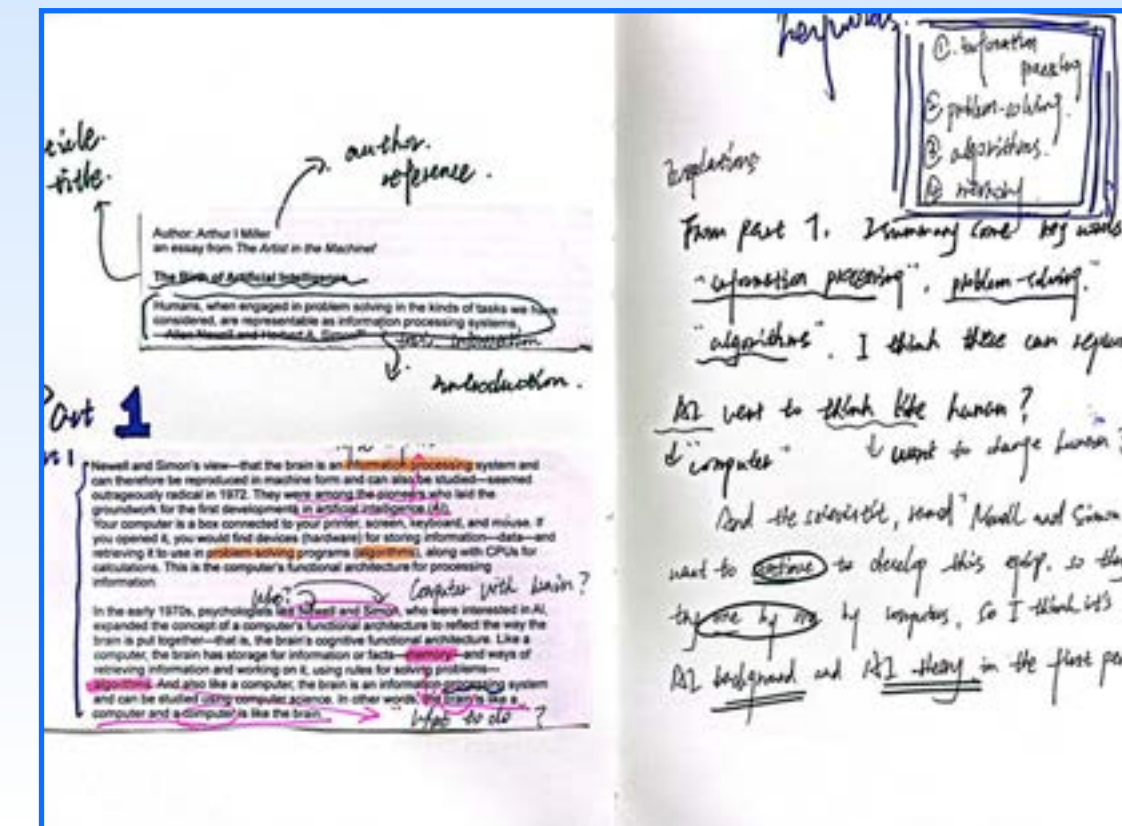 title.
author.
reference.
Author: Arthur I Miller
an essay from The Artist in the Machine
The Birth of Artificial Intelligence
Humans, when engaged in problem solving in the kinds of tasks we have
considered, are representable as information processing systems.
Allen Newell and Herbert A. Simon
information
introduction.
Part 1
Newell and Simon's view—that the brain is an information processing system and
can therefore be reproduced in machine form and can also be studied—seemed
outrageously radical in 1972. They were among the pioneers who laid the
groundwork for the first developments in artificial intelligence (AI).
Your computer is a box connected to your printer, screen, keyboard, and mouse. If
you opened it, you would find devices (hardware) for storing information—data—and
retrieving it to use in problem-solving programs (algorithms), along with CPUs for
calculations. This is the computer's functional architecture for processing
information.
who?
Computer with brain?
In the early 1970s, psychologists like Newell and Simon, who were interested in AI,
expanded the concept of a computer's functional architecture to reflect the way the
brain is put together—that is, the brain's cognitive functional architecture. Like a
computer, the brain has storage for information or facts—memory—and ways of
retrieving information and working on it, using rules for solving problems—
algorithms. And also like a computer, the brain is an information-processing system
and can be studied using computer science. In other words, the brain is like a
computer and a computer is like the brain.
What to do?
keywords.
①. information
processing
② problem-solving.
③ algorithms.
④ memory.
From part 1. I summary key words
"information processing", problem-solving."
"algorithms". I think these can
AI want to think like human?
"computer"
want to change human?
And the scientist, "Newell and Simon
want to continue to develop this
one by one by computers, so I think it's
AI background and AI theory in the first